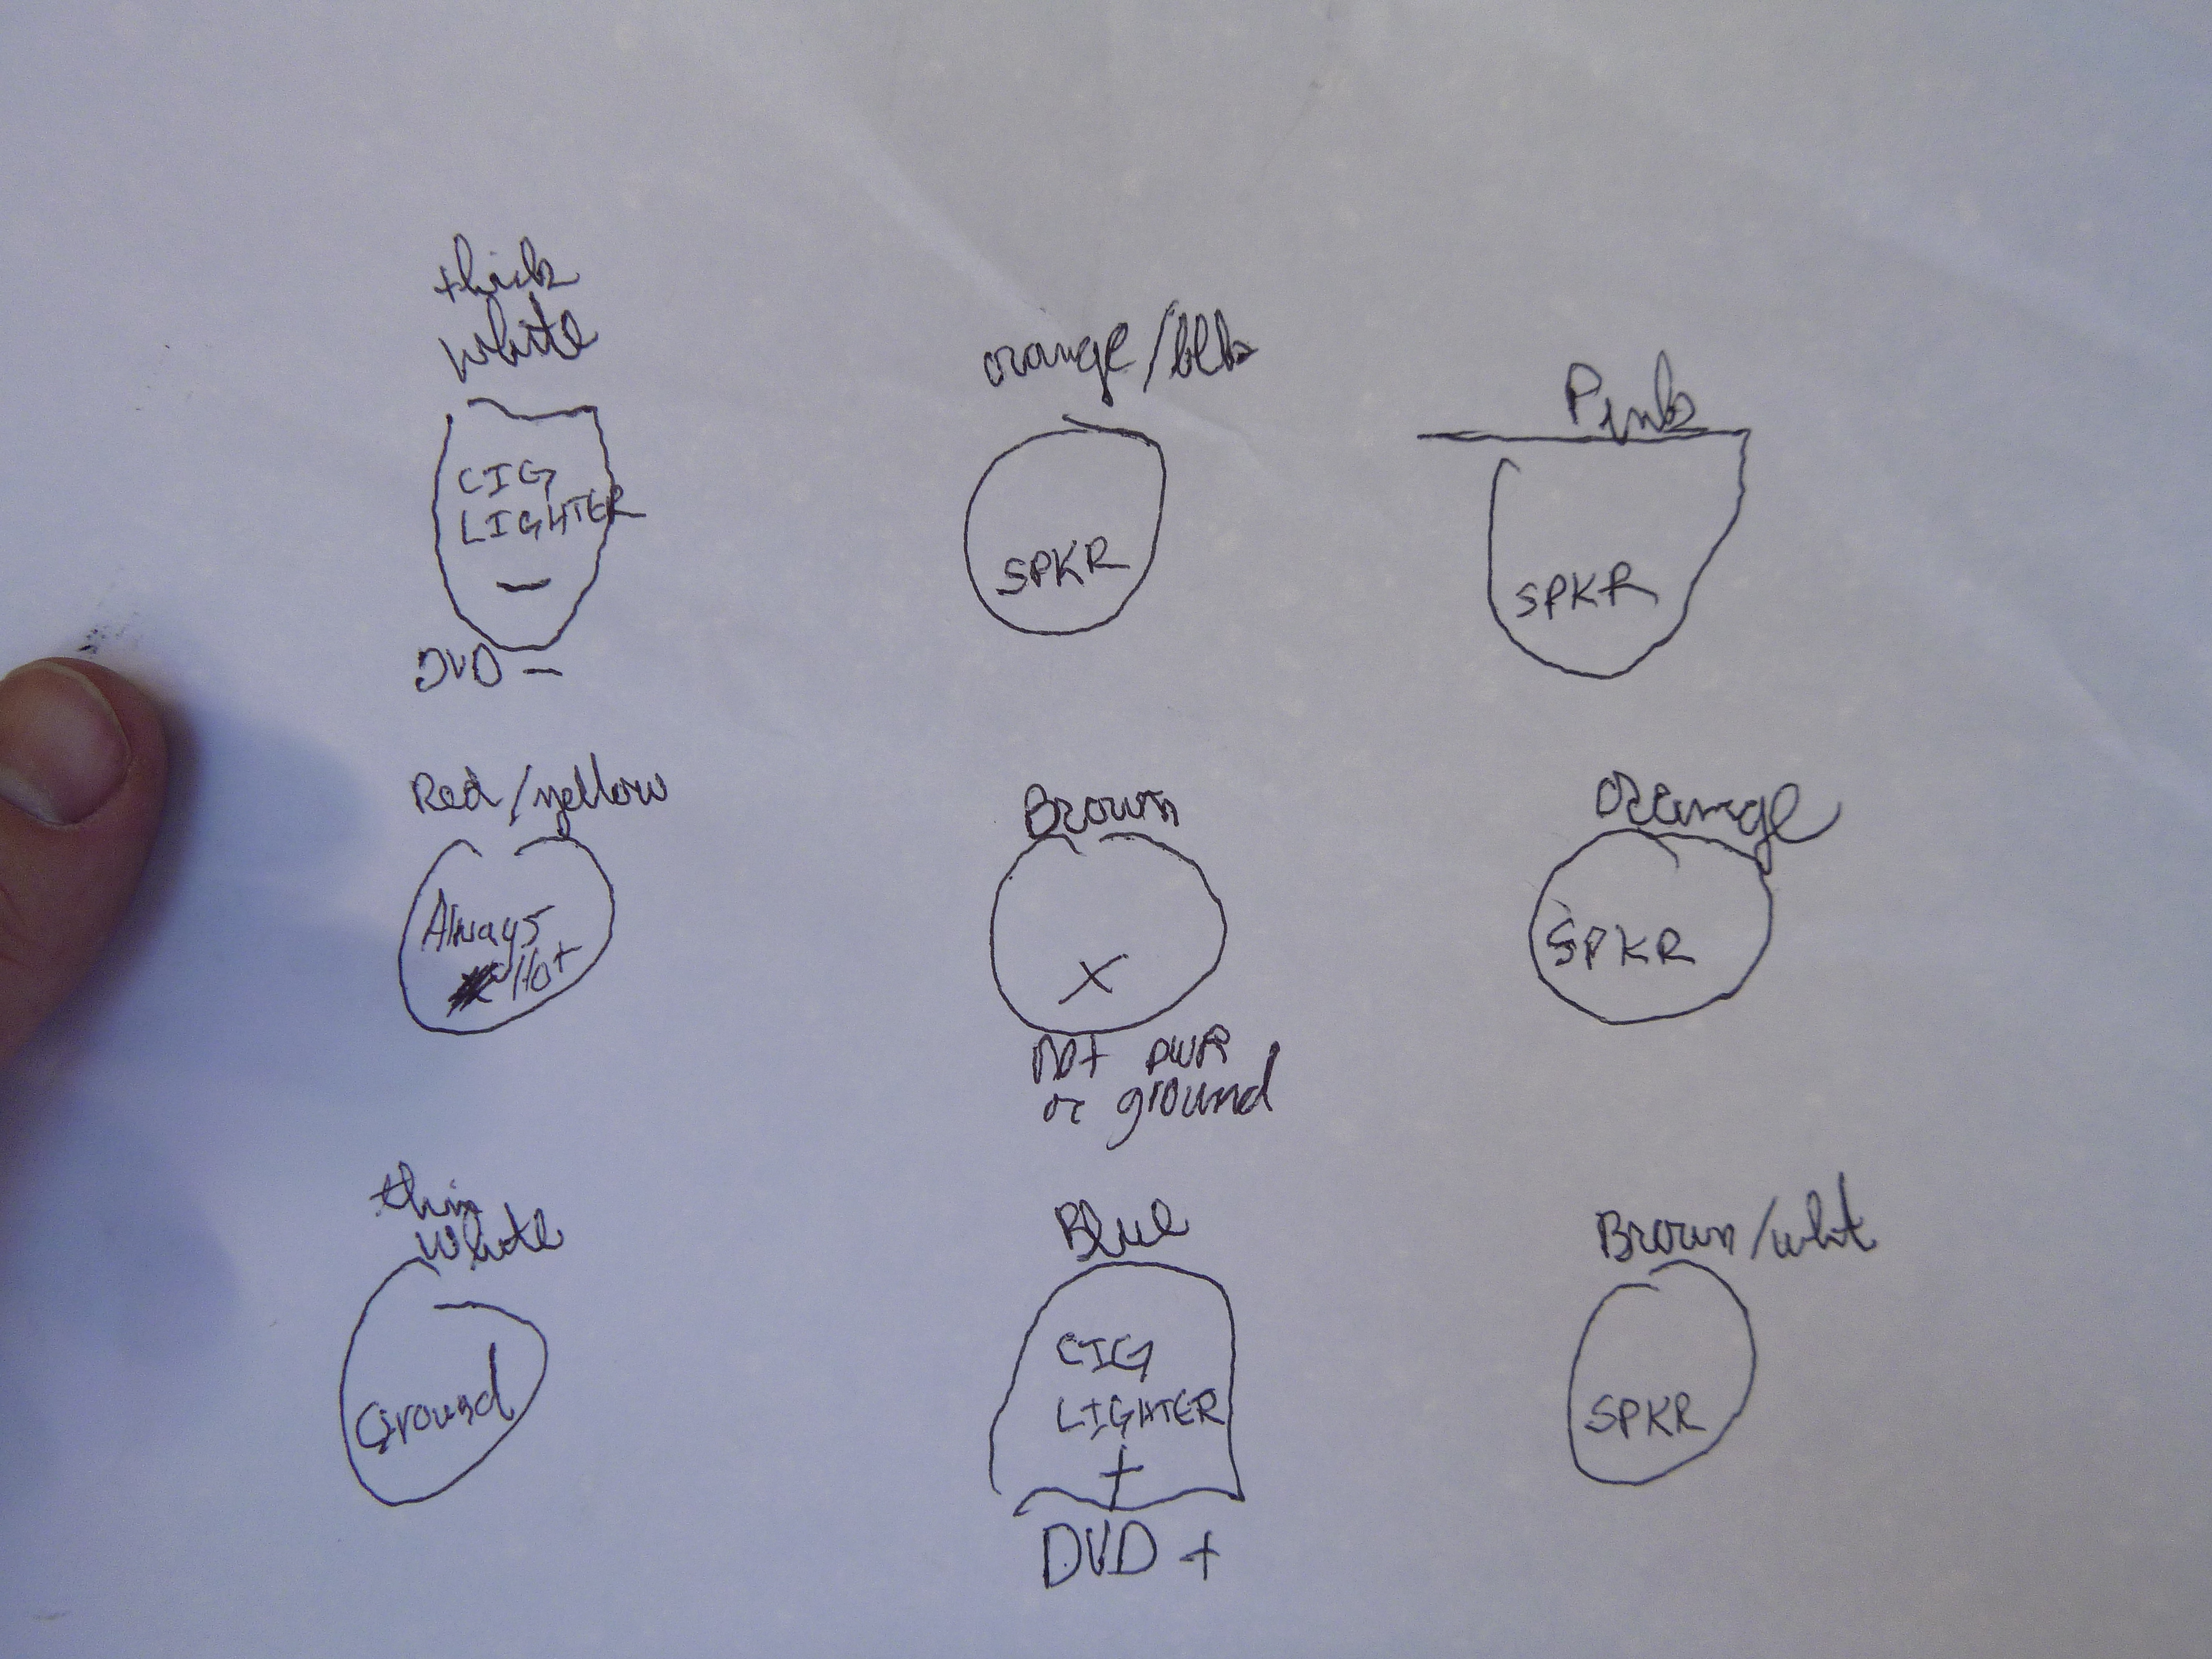 thick
white
CIG
LIGHTER
—
DVD —
orange/blk
SPKR
Pink
SPKR
Red/yellow
Always
Hot
Brown
X
Not PWR
or ground
orange
SPKR
thin
white
Ground
Blue
CIG
LIGHTER
+
DVD +
Brown/wht
SPKR